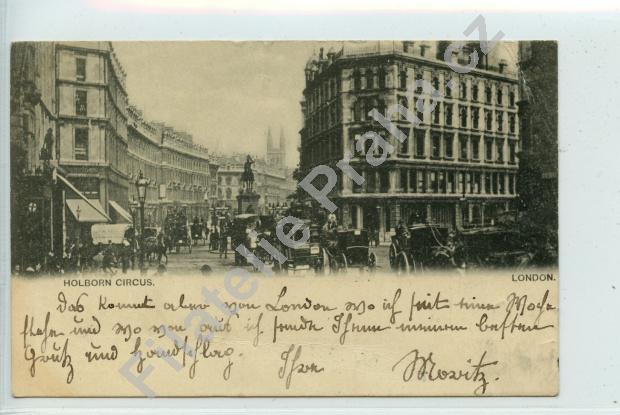 HOLBORN CIRCUS.
LONDON.
Das kommt aber von London wo ich seit eine Woche
stehe und wo von aus ich sende Ihnen meinen besten
Gruß und Handschlag.
Ihre Moritz.
Filatelie Praha.cz